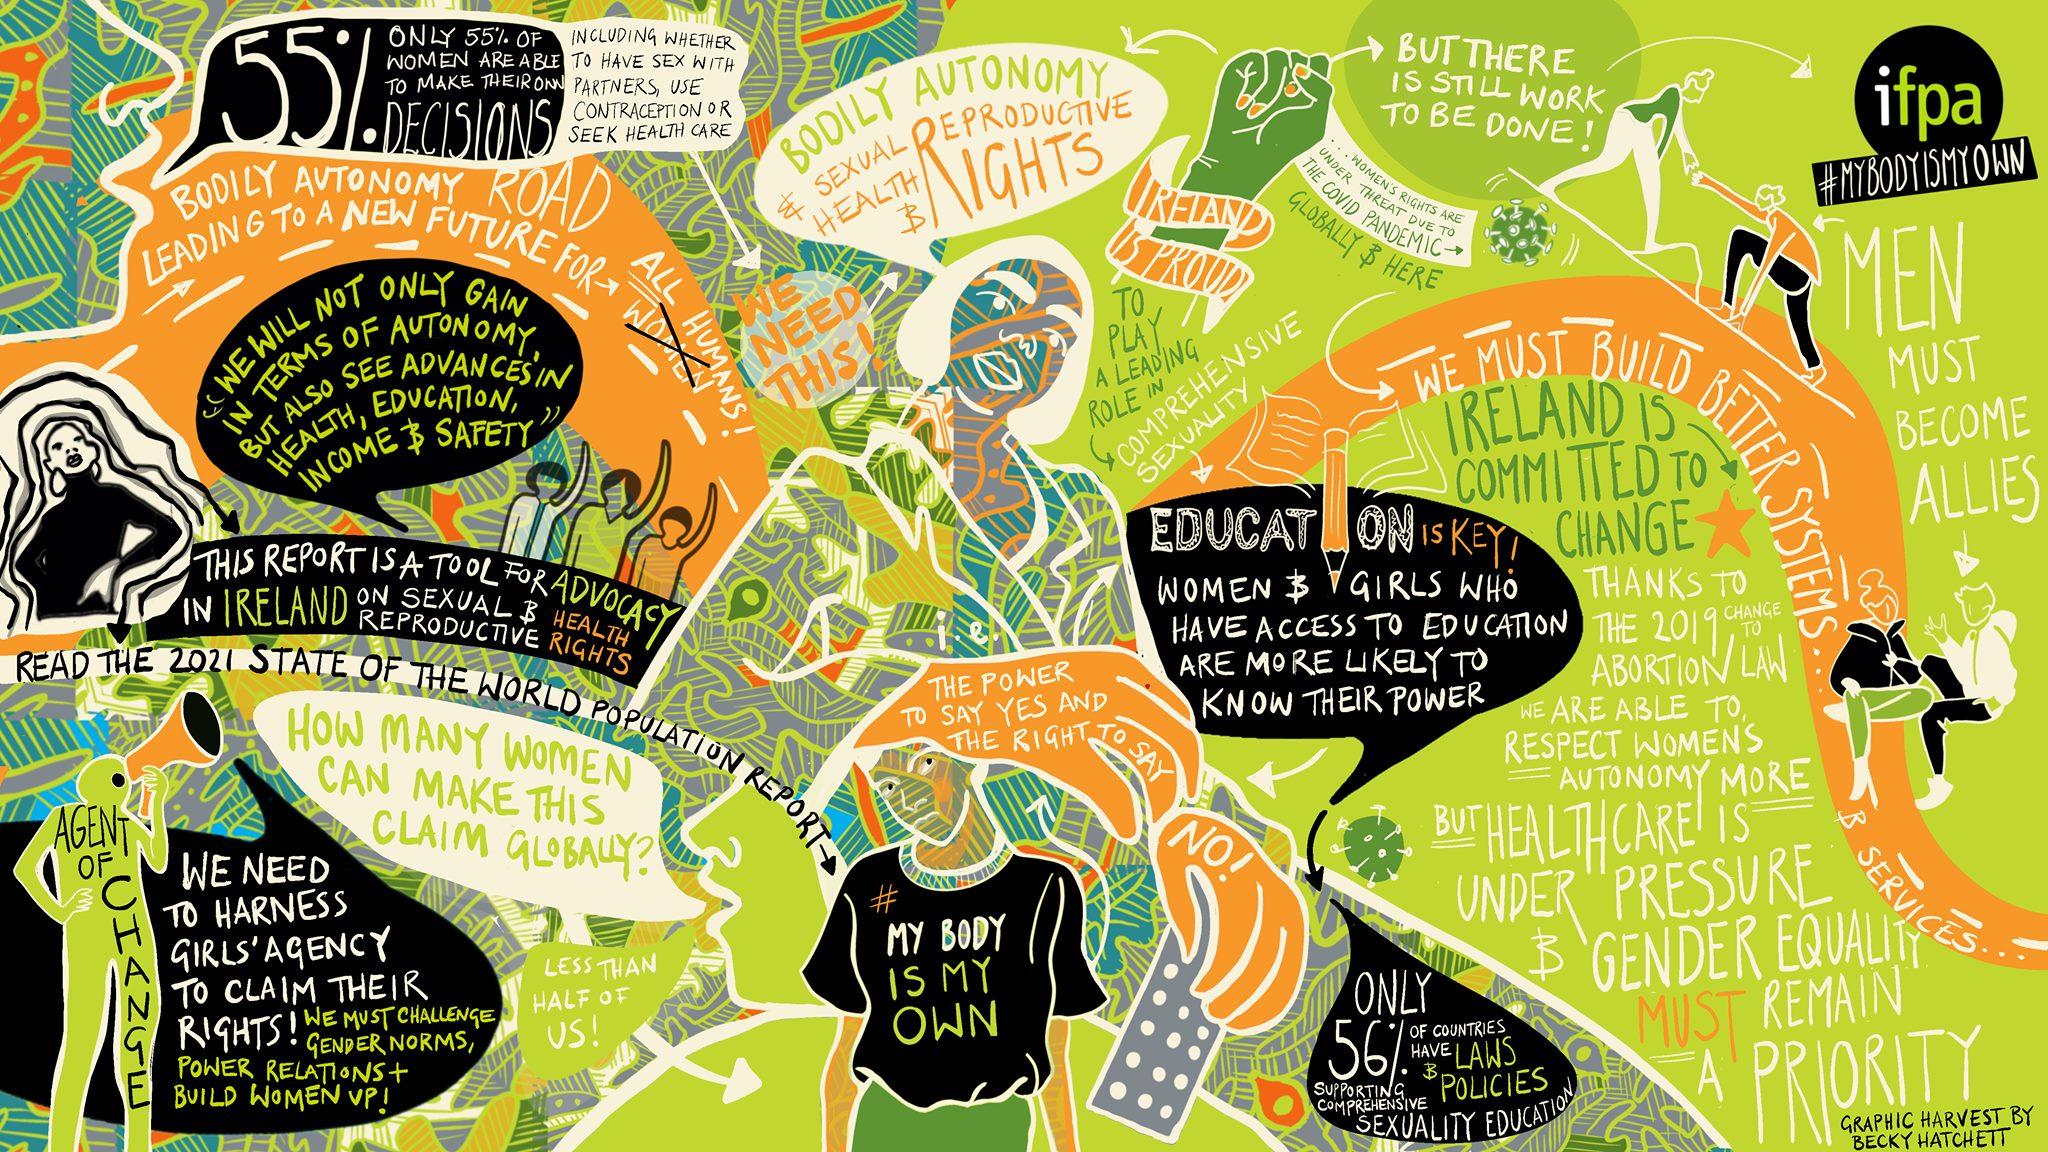 55%.
ONLY 55% OF
WOMEN ARE ABLE
TO MAKE THEIR OWN
DECISIONS
INCLUDING WHETHER
TO HAVE SEX WITH
PARTNERS, USE
CONTRACEPTION OR
SEEK HEALTH CARE
BODILY AUTONOMY ROAD
LEADING TO A NEW FUTURE FOR
ALL
WOMEN
HUMANS!
"WE WILL NOT ONLY GAIN
IN TERMS OF AUTONOMY,
BUT ALSO SEE ADVANCES IN
HEALTH, EDUCATION,
INCOME & SAFETY"
THIS REPORT IS A TOOL FOR ADVOCACY
IN IRELAND ON SEXUAL &
REPRODUCTIVE HEALTH
RIGHTS
READ THE 2021 STATE OF THE WORLD POPULATION REPORT
AGENT
OF
CHANGE
WE NEED
TO HARNESS
GIRLS' AGENCY
TO CLAIM THEIR
RIGHTS! WE MUST CHALLENGE
GENDER NORMS,
POWER RELATIONS +
BUILD WOMEN UP!
HOW MANY WOMEN
CAN MAKE THIS
CLAIM GLOBALLY?
LESS THAN
HALF OF
US!
WE
NEED
THIS!
BODILY AUTONOMY
& SEXUAL REPRODUCTIVE
HEALTH & RIGHTS
i.e.
THE POWER
TO SAY YES AND
THE RIGHT TO SAY
NO!
#
MY BODY
IS MY
OWN
IRELAND
IS PROUD
TO
PLAY
A LEADING
ROLE IN
COMPREHENSIVE
SEXUALITY
EDUCATION IS KEY!
WOMEN & GIRLS WHO
HAVE ACCESS TO EDUCATION
ARE MORE LIKELY TO
KNOW THEIR POWER
ONLY
56% OF COUNTRIES
HAVE LAWS
& POLICIES
SUPPORTING
COMPREHENSIVE
SEXUALITY EDUCATION
BUT THERE
IS STILL WORK
TO BE DONE!
...WOMEN'S RIGHTS ARE
UNDER THREAT DUE TO
THE COVID PANDEMIC
GLOBALLY & HERE
WE MUST BUILD BETTER SYSTEMS...
& SERVICES...
IRELAND IS
COMMITTED TO
CHANGE
THANKS TO
THE 2019 CHANGE TO
ABORTION LAW
WE ARE ABLE TO
RESPECT WOMEN'S
AUTONOMY MORE
BUT HEALTHCARE IS
UNDER PRESSURE
& GENDER EQUALITY
MUST REMAIN
A PRIORITY
ifpa
#MYBODYISMYOWN
MEN
MUST
BECOME
ALLIES
GRAPHIC HARVEST BY
BECKY HATCHETT